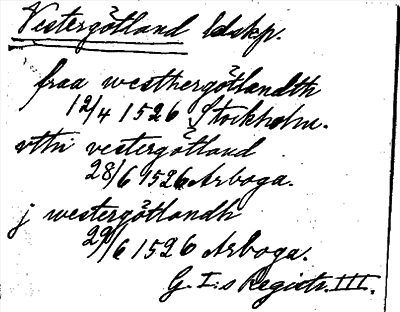 Vestergötland ldskp.
fraa westhergötlandth
12/4 1526 Stockholm.
vthi vestergötland
28/6 1526 Arboga.
j westergötlandh
29/6 1526 Arboga.
G. I:s Registr. III.